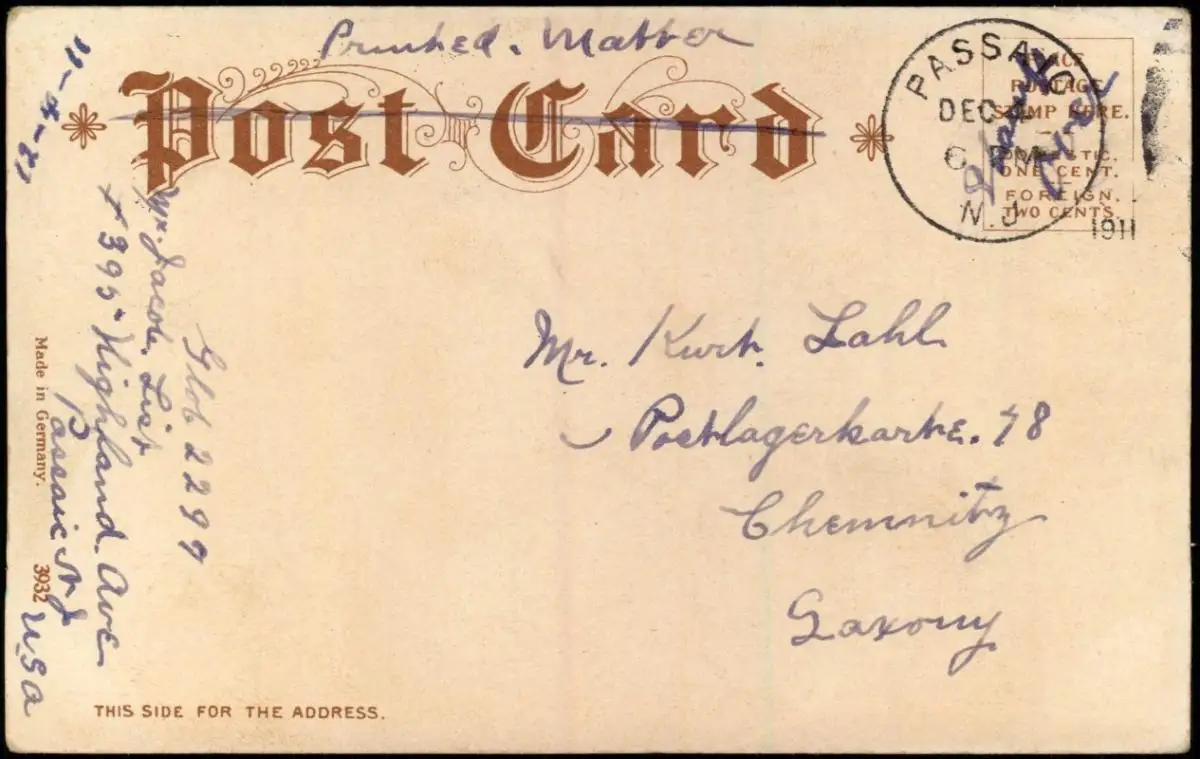 Printed. Matter
Post Card
PASSAIC
DEC 4
6 PM
N.J.
1911
PLACE
POSTAGE
STAMP HERE.
DOMESTIC.
ONE CENT.
FOREIGN.
TWO CENTS.
Mr. Kurt. Lahl
Postlagerkarte. 48
Chemnitz
Saxony
Glob 2299
Mr. Jacob. List
+ 395 Highland. Ave
Passaic NJ
USA
Made in Germany. 3932
THIS SIDE FOR THE ADDRESS.